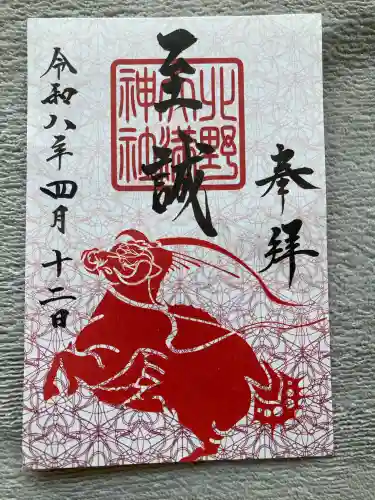 奉拝
至誠
北野
天満
神社
令和八年四月十二日